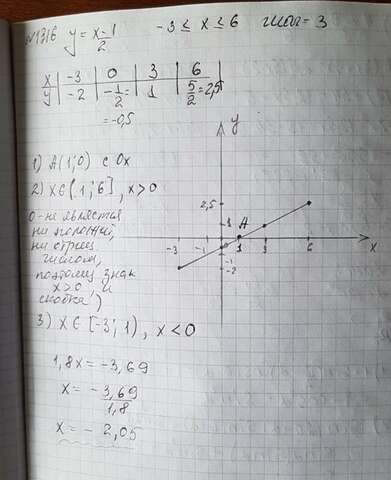 №1316 y = x-1/2 -3 ≤ x ≤ 6 шаг = 3
x | -3 | 0 | 3 | 6
y | -2 | -1/2 = | 1 | 5/2 = 2,5
= -0,5
y
1) A(1;0) с Ox
2) x∈(1;6], x>0
0 - не является
ни полож,
ни отриц
числом,
поэтому знак
x>0 и
скобка)
2,5
A
1
-3 -1 0 1 3 6 x
-1
-2
3) x∈[-3;1), x<0
1,8x = -3,69
x = -3,69/1,8
x = -2,05